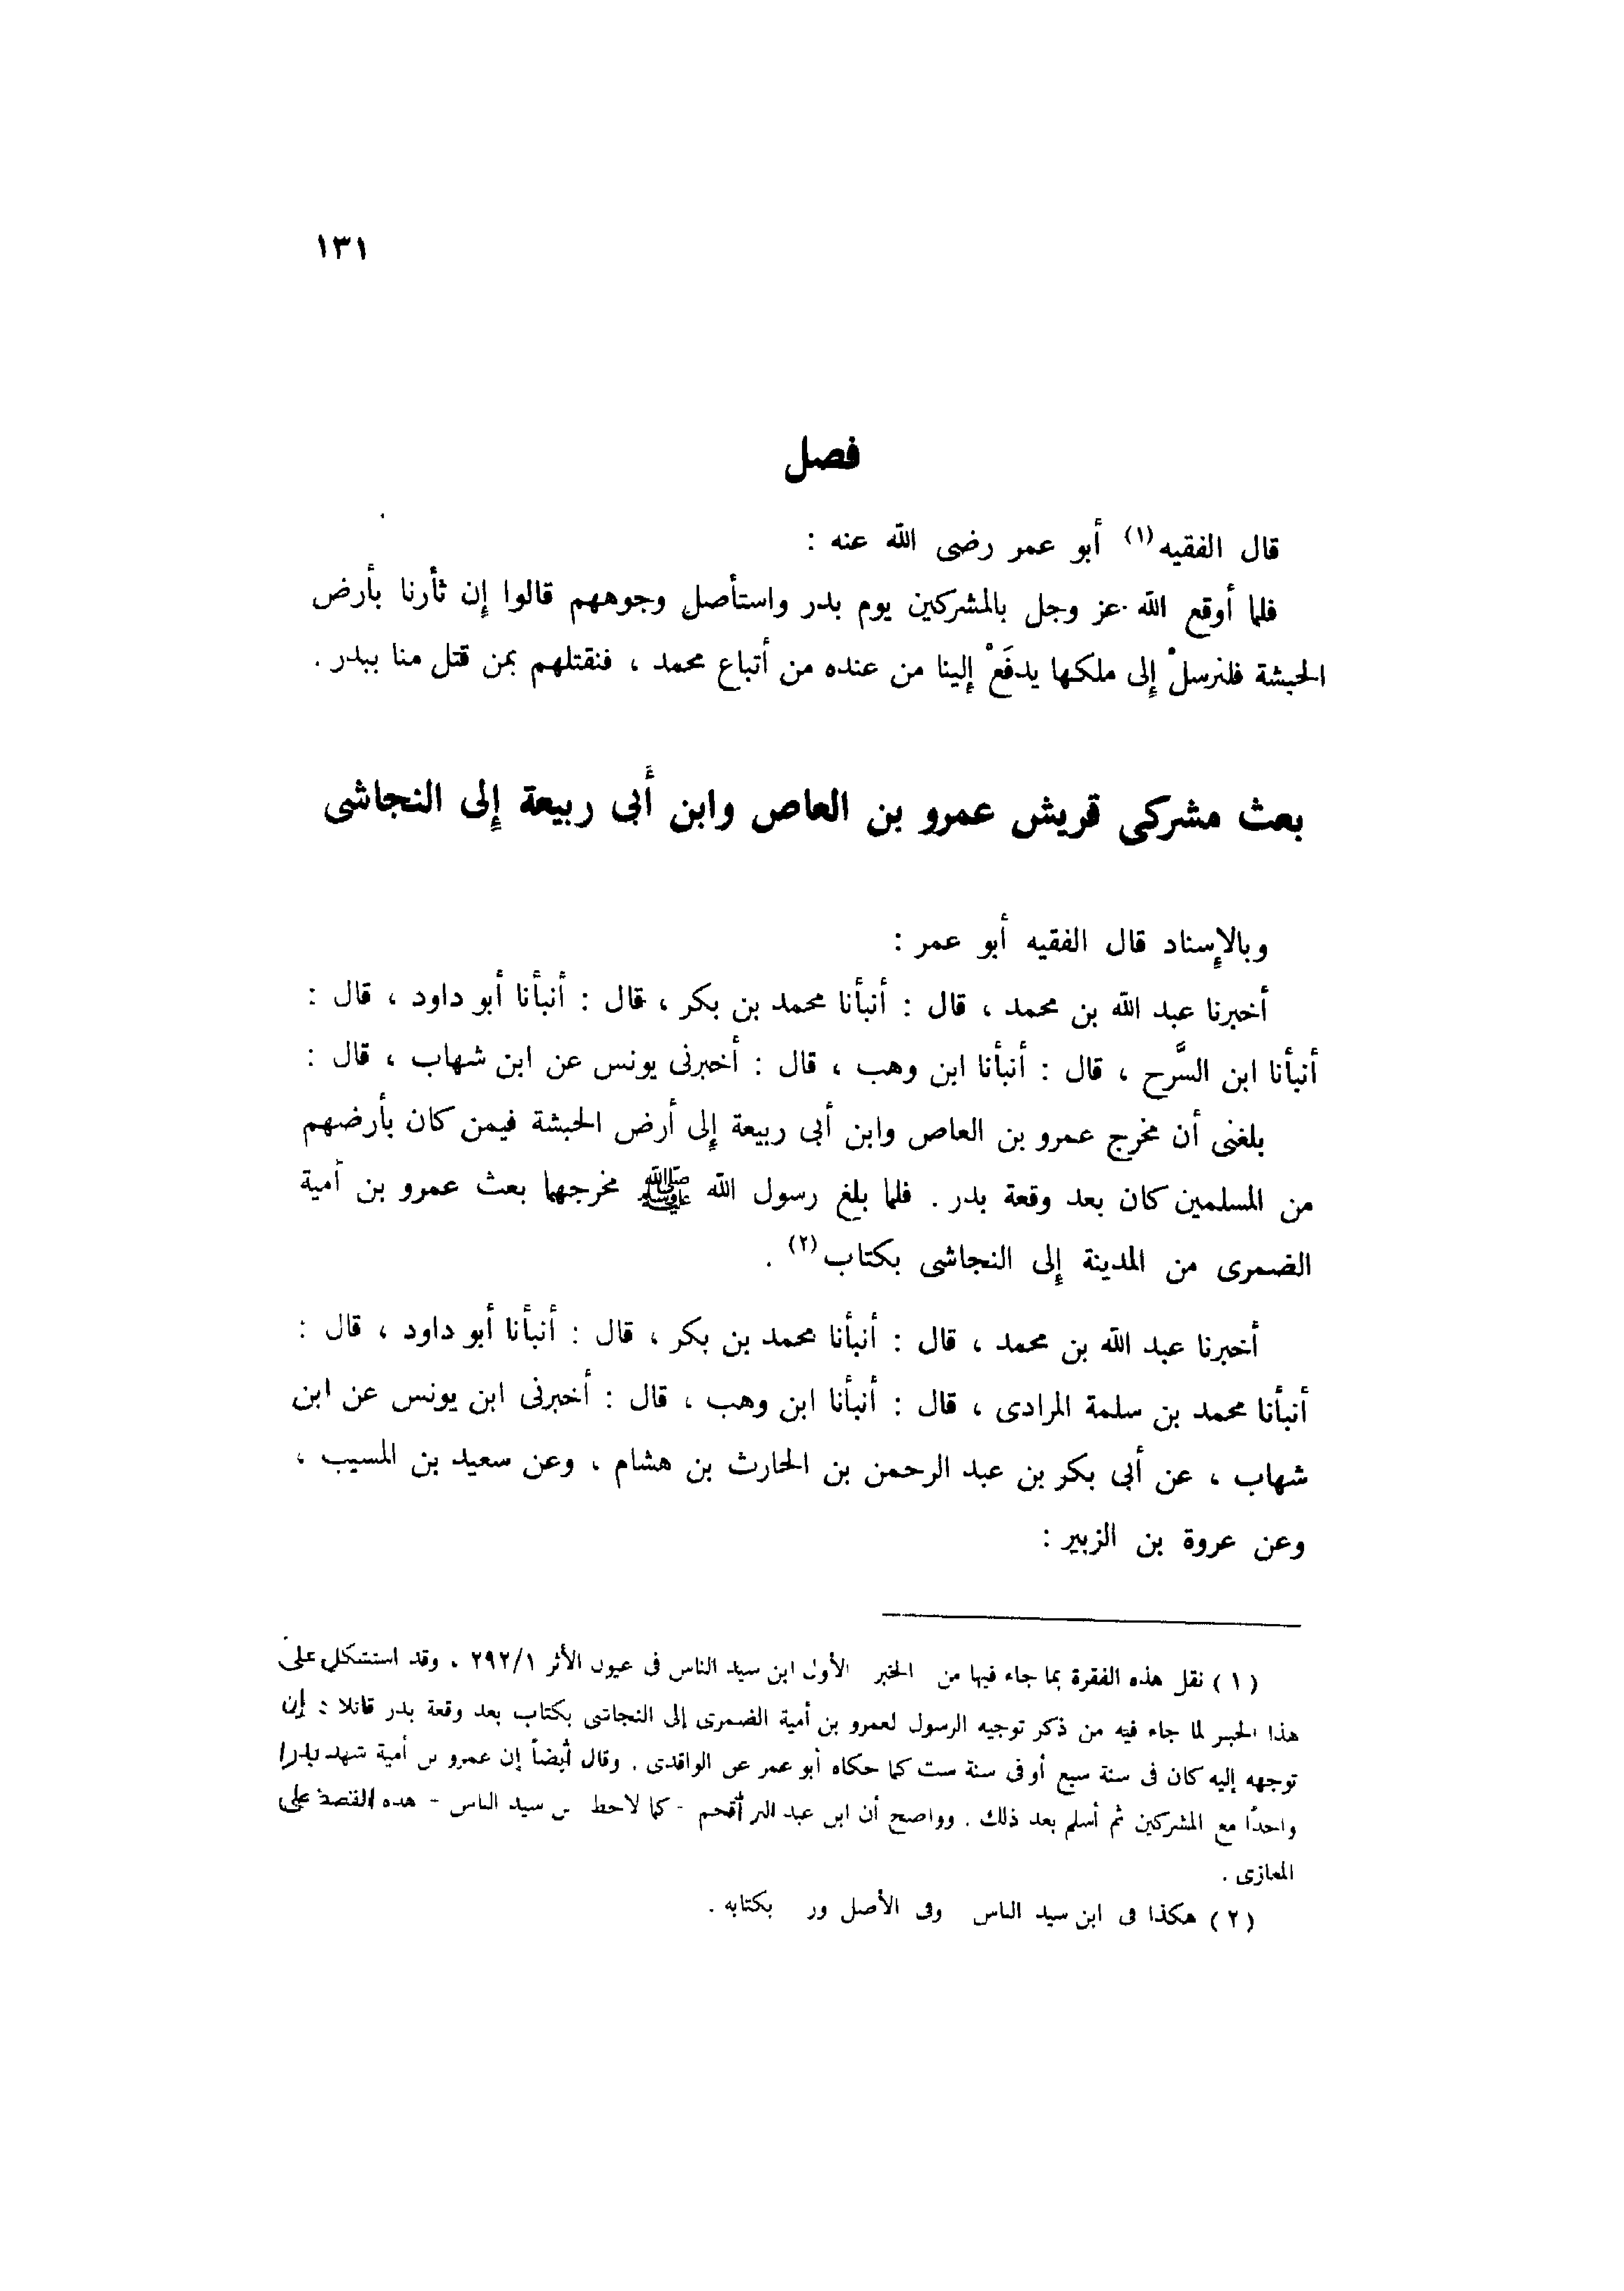 ١٣١
فصل
قال الفقيه(١) أبو عمر رضى الله عنه :
فلما أوقع الله عز وجل بالمشركين يوم بدر واستأصل وجوههم قالوا إن ثأرنا بأرض
الحبشة فلنرسلْ إلى ملكها يدفَعْ إلينا من عنده من أتباع محمد ، فنقتلهم بمن قتل منا ببدر .
بعث مشركى قريش عمرو بن العاص وابن أبى ربيعة إلى النجاشى
وبالإسناد قال الفقيه أبو عمر :
أخبرنا عبد الله بن محمد ، قال : أنبأنا محمد بن بكر ، قال : أنبأنا أبو داود ، قال :
أنبأنا ابن السَّرح ، قال : أنبأنا ابن وهب ، قال : أخبرنى يونس عن ابن شهاب ، قال :
بلغنى أن مخرج عمرو بن العاص وابن أبى ربيعة إلى أرض الحبشة فيمن كان بأرضهم
من المسلمين كان بعد وقعة بدر . فلما بلغ رسول الله ﷺ مخرجهما بعث عمرو بن أمية
الضمرى من المدينة إلى النجاشى بكتاب(٢) .
أخبرنا عبد الله بن محمد ، قال : أنبأنا محمد بن بكر ، قال : أنبأنا أبو داود ، قال :
أنبأنا محمد بن سلمة المرادى ، قال : أنبأنا ابن وهب ، قال : أخبرنى ابن يونس عن ابن
شهاب ، عن أبى بكر بن عبد الرحمن بن الحارث بن هشام ، وعن سعيد بن المسيب ،
وعن عروة بن الزبير :
(١) نقل هذه الفقرة بما جاء فيها من الخبر الأول ابن سيد الناس فى عيون الأثر ٢٩٢/١ ، وقد استشكل على
هذا الخبر لما جاء فيه من ذكر توجيه الرسول لعمرو بن أمية الضمرى إلى النجاشى بكتاب بعد وقعة بدر قائلا : إن
توجهه إليه كان فى سنة سبع أو فى سنة ست كما حكاه أبو عمر عن الواقدى . وقال أيضاً إن عمرو بن أمية شهد بدرا
واحدًا مع المشركين ثم أسلم بعد ذلك . وواضح أن ابن عبد البر أقحم - كما لاحظ بن سيد الناس - هذه القصة على
المغازى .
(٢) هكذا فى ابن سيد الناس وفى الأصل ور بكتابه .